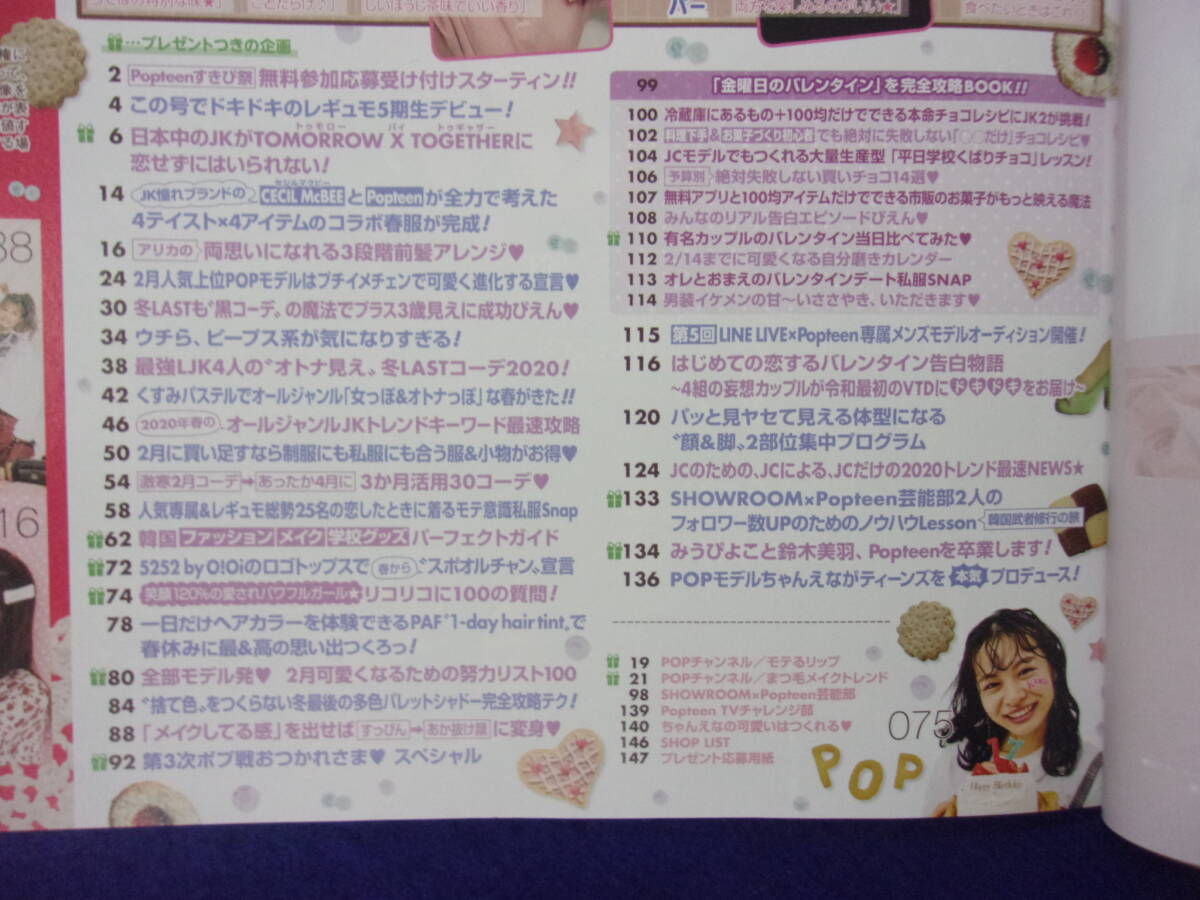 しいほうじ茶味でいい香り
バー
…プレゼントつきの企画
2 Popteenすきぴ祭 無料参加応募受け付けスターティン!!
4 この号でドキドキのレギュモ5期生デビュー!
トゥモロー バイ トゥギャザー
6 日本中のJKがTOMORROW X TOGETHERに
恋せずにはいられない!
セシルマクビー
14 JK憧れブランドの CECIL McBEEとPopteenが全力で考えた
4テイスト×4アイテムのコラボ春服が完成!
16 アリカの 両思いになれる3段階前髪アレンジ♥
24 2月人気上位POPモデルはプチイメチェンで可愛く進化する宣言♥
30 冬LASTも〝黒コーデ〟の魔法でプラス3歳見えに成功ぴえん♥
34 ウチら、ピープス系が気になりすぎる!
38 最強LJK4人の〝オトナ見え〟冬LASTコーデ2020!
42 くすみパステルでオールジャンル「女っぽ&オトナっぽ」な春がきた!!
46 2020年春の オールジャンルJKトレンドキーワード最速攻略
50 2月に買い足すなら制服にも私服にも合う服&小物がお得♥
54 激寒2月コーデ→あったか4月に 3か月活用30コーデ♥
58 人気専属&レギュモ総勢25名の恋したときに着るモテ意識私服Snap
62 韓国 ファッション メイク 学校グッズ パーフェクトガイド
72 5252 by O!Oiのロゴトップスで 春から 〝スポオルチャン〟宣言
74 笑顔120%の愛されパワフルガール★ リコリコに100の質問!
78 一日だけヘアカラーを体験できるPAF〝1-day hair tint〟で
春休みに最&高の思い出つくろっ!
80 全部モデル発♥ 2月可愛くなるための努力リスト100
84 〝捨て色〟をつくらない冬最後の多色パレットシャドー完全攻略テク!
88 「メイクしてる感」を出せば すっぴん→あか抜け顔 に変身♥
92 第3次ボブ戦おつかれさま♥ スペシャル
99 「金曜日のバレンタイン」を完全攻略BOOK!!
100 冷蔵庫にあるもの+100均だけでできる本命チョコレシピにJK2が挑戦!
102 料理下手&お菓子づくり初心者でも絶対に失敗しない「○○だけ」チョコレシピ♥
104 JCモデルでもつくれる大量生産型「平日学校くばりチョコ」レッスン!
106 予算別 絶対失敗しない買いチョコ14選♥
107 無料アプリと100均アイテムだけでできる市販のお菓子がもっと映える魔法
108 みんなのリアル告白エピソードぴえん♥
110 有名カップルのバレンタイン当日比べてみた♥
112 2/14までに可愛くなる自分磨きカレンダー
113 オレとおまえのバレンタインデート私服SNAP
114 男装イケメンの甘〜いささやき、いただきます♥
115 第5回 LINE LIVE×Popteen専属メンズモデルオーディション開催!
116 はじめての恋するバレンタイン告白物語
~4組の妄想カップルが令和最初のVTDにドキドキをお届け~
120 パッと見ヤセて見える体型になる
〝顔&脚〟2部位集中プログラム
124 JCのための、JCによる、JCだけの2020トレンド最速NEWS★
133 SHOWROOM×Popteen芸能部2人の
フォロワー数UPのためのノウハウLesson 韓国武者修行の旅
134 みうぴよこと鈴木美羽、Popteenを卒業します!
136 POPモデルちゃんえながティーンズを 本気 プロデュース!
19 POPチャンネル/モテるリップ
21 POPチャンネル/まつ毛メイクトレンド
98 SHOWROOM×Popteen芸能部
139 Popteen TVチャレンジ部
140 ちゃんえなの可愛いはつくれる♥
146 SHOP LIST
147 プレゼント応募用紙
075
POP
17
Happy Birthday
88
16